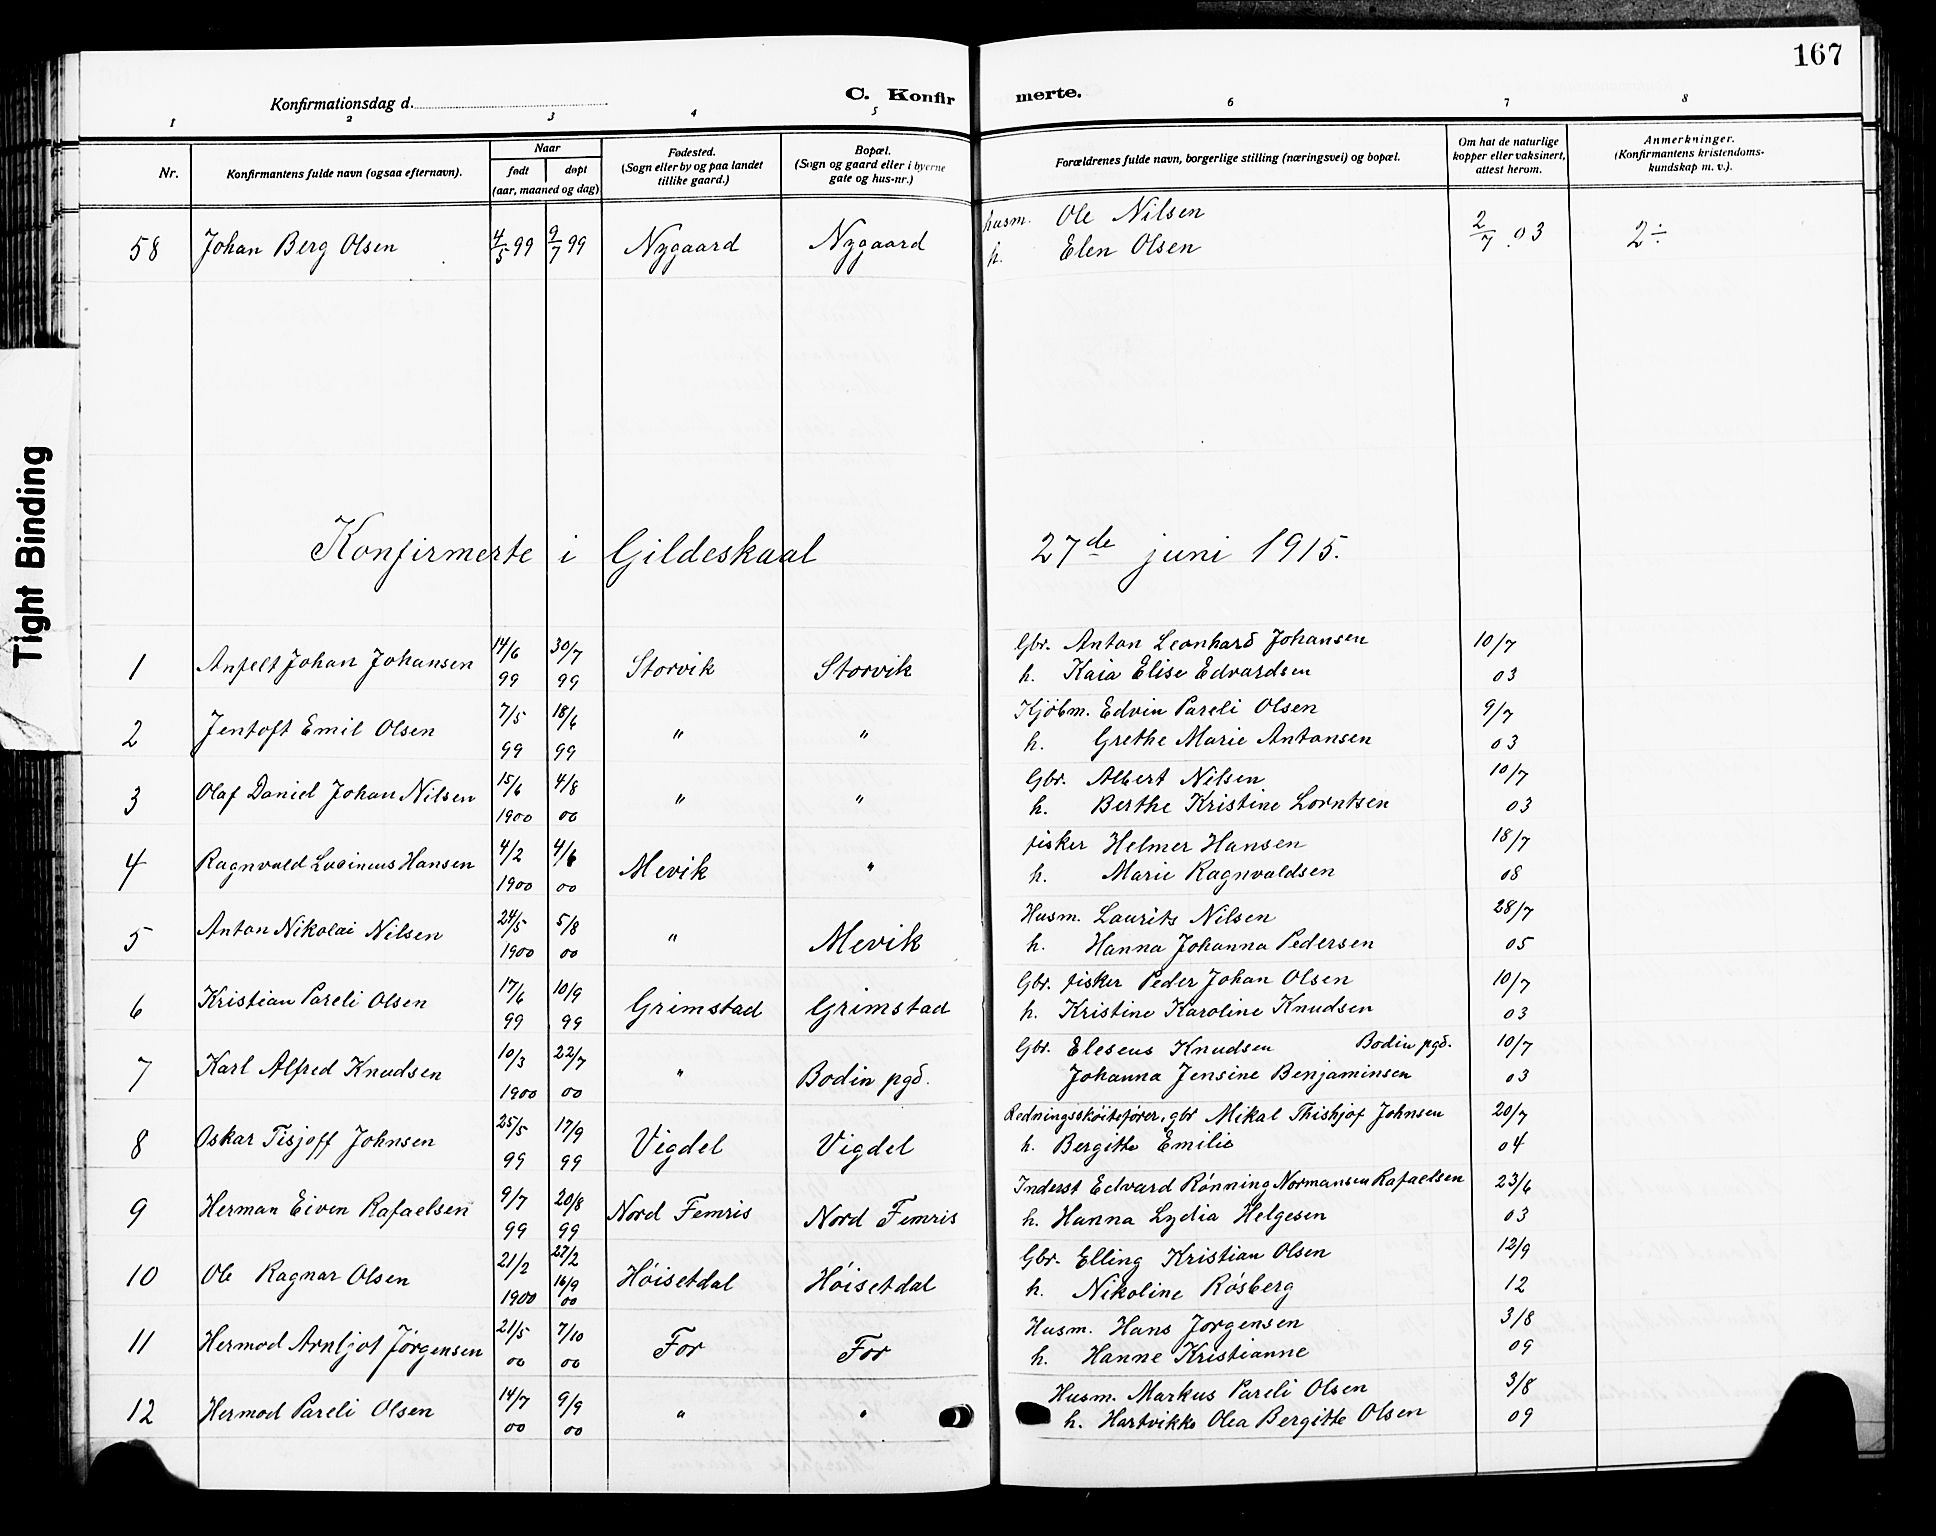 167
Konfirmationsdag d.
C. Konfir merte.
1 2 3 4 5 6 7 8
Nr.
Konfirmantens fulde navn (ogsaa efternavn).
Naar
født døpt
(aar, maaned og dag)
Fødested.
(Sogn eller by og paa landet
tillike gaard.)
Bopæl.
(Sogn og gaard eller i byerne
gate og hus-nr.)
Forældrenes fulde navn, borgerlige stilling (næringsvei) og bopæl.
Om hat de naturlige
kopper eller vaksinert,
attest herom.
Anmerkninger.
(Konfirmantens kristendoms-
kundskap m. v.).
58 Johan Berg Olsen 4/5 99 9/7 99 Nygaard Nygaard husm. Ole Nilsen 2/7 03 2÷
h. Elen Olsen
Konfirmerte i Gildeskaal 27de juni 1915.
1 Anfelt Johan Johansen 14/6 99 30/7 99 Storvik Storvik Gbr. Anton Leonhard Johansen 10/7 03
h. Kaia Elise Edvardsen
2 Jentoft Emil Olsen 7/5 99 18/6 99 " " Kjøbm. Edvin Pareli Olsen 9/7 03
h. Grethe Marie Antonsen
3 Olaf Daniel Johan Nilsen 15/6 1900 4/8 00 " " Gbr. Albert Nilsen 10/7 03
h. Berthe Kristine Lorntsen
4 Ragnvald Hansen 4/2 1900 4/6 00 Mevik " fisker Helmer Hansen 18/7 08
h. Marie Ragnvaldsen
5 Anton Nikolai Nilsen 24/5 1900 5/8 00 " Mevik Husm. Laurits Nilsen 28/7 05
h. Hanna Johanna Pedersen
6 Kristian Pareli Olsen 17/6 99 10/9 99 Grimstad Grimstad Gbr. fisker Peder Johan Olsen 10/7 03
h. Kristine Karoline Knudsen
7 Karl Alfred Knudsen 10/3 1900 22/7 00 " Bodin pgd. Gbr. Eleseus Knudsen Bodin pgd. 10/7 03
Johanna Jensine Benjaminsen
8 Oskar Tisjoff Johnsen 25/5 99 17/9 99 Vigdel Vigdel Redningsskøitefører, gbr Mikal Thishjof Johnsen 20/7 04
h. Bergitte Emilie
9 Herman Eiven Rafaelsen 9/7 99 20/8 99 Nord Femris Nord Femris Inderst Edvard Rønning Normansen Rafaelsen 23/6 03
h. Hanna Lydia Helgesen
10 Ole Ragnar Olsen 21/2 1900 27/2 16/9 00 Høisetdal Høisetdal Gbr. Elling Kristian Olsen 12/9 12
h. Nikoline Røsberg
11 Hermod Arnljot Jørgensen 21/5 00 7/10 00 For For Husm. Hans Jorgensen 3/8 09
h. Hanne Kristianne
12 Hermod Pareli Olsen 14/7 00 9/9 00 " " Husm. Markus Pareli Olsen 3/8 09
h. Hartvikke Olea Bergitte Olsen
Tight Binding